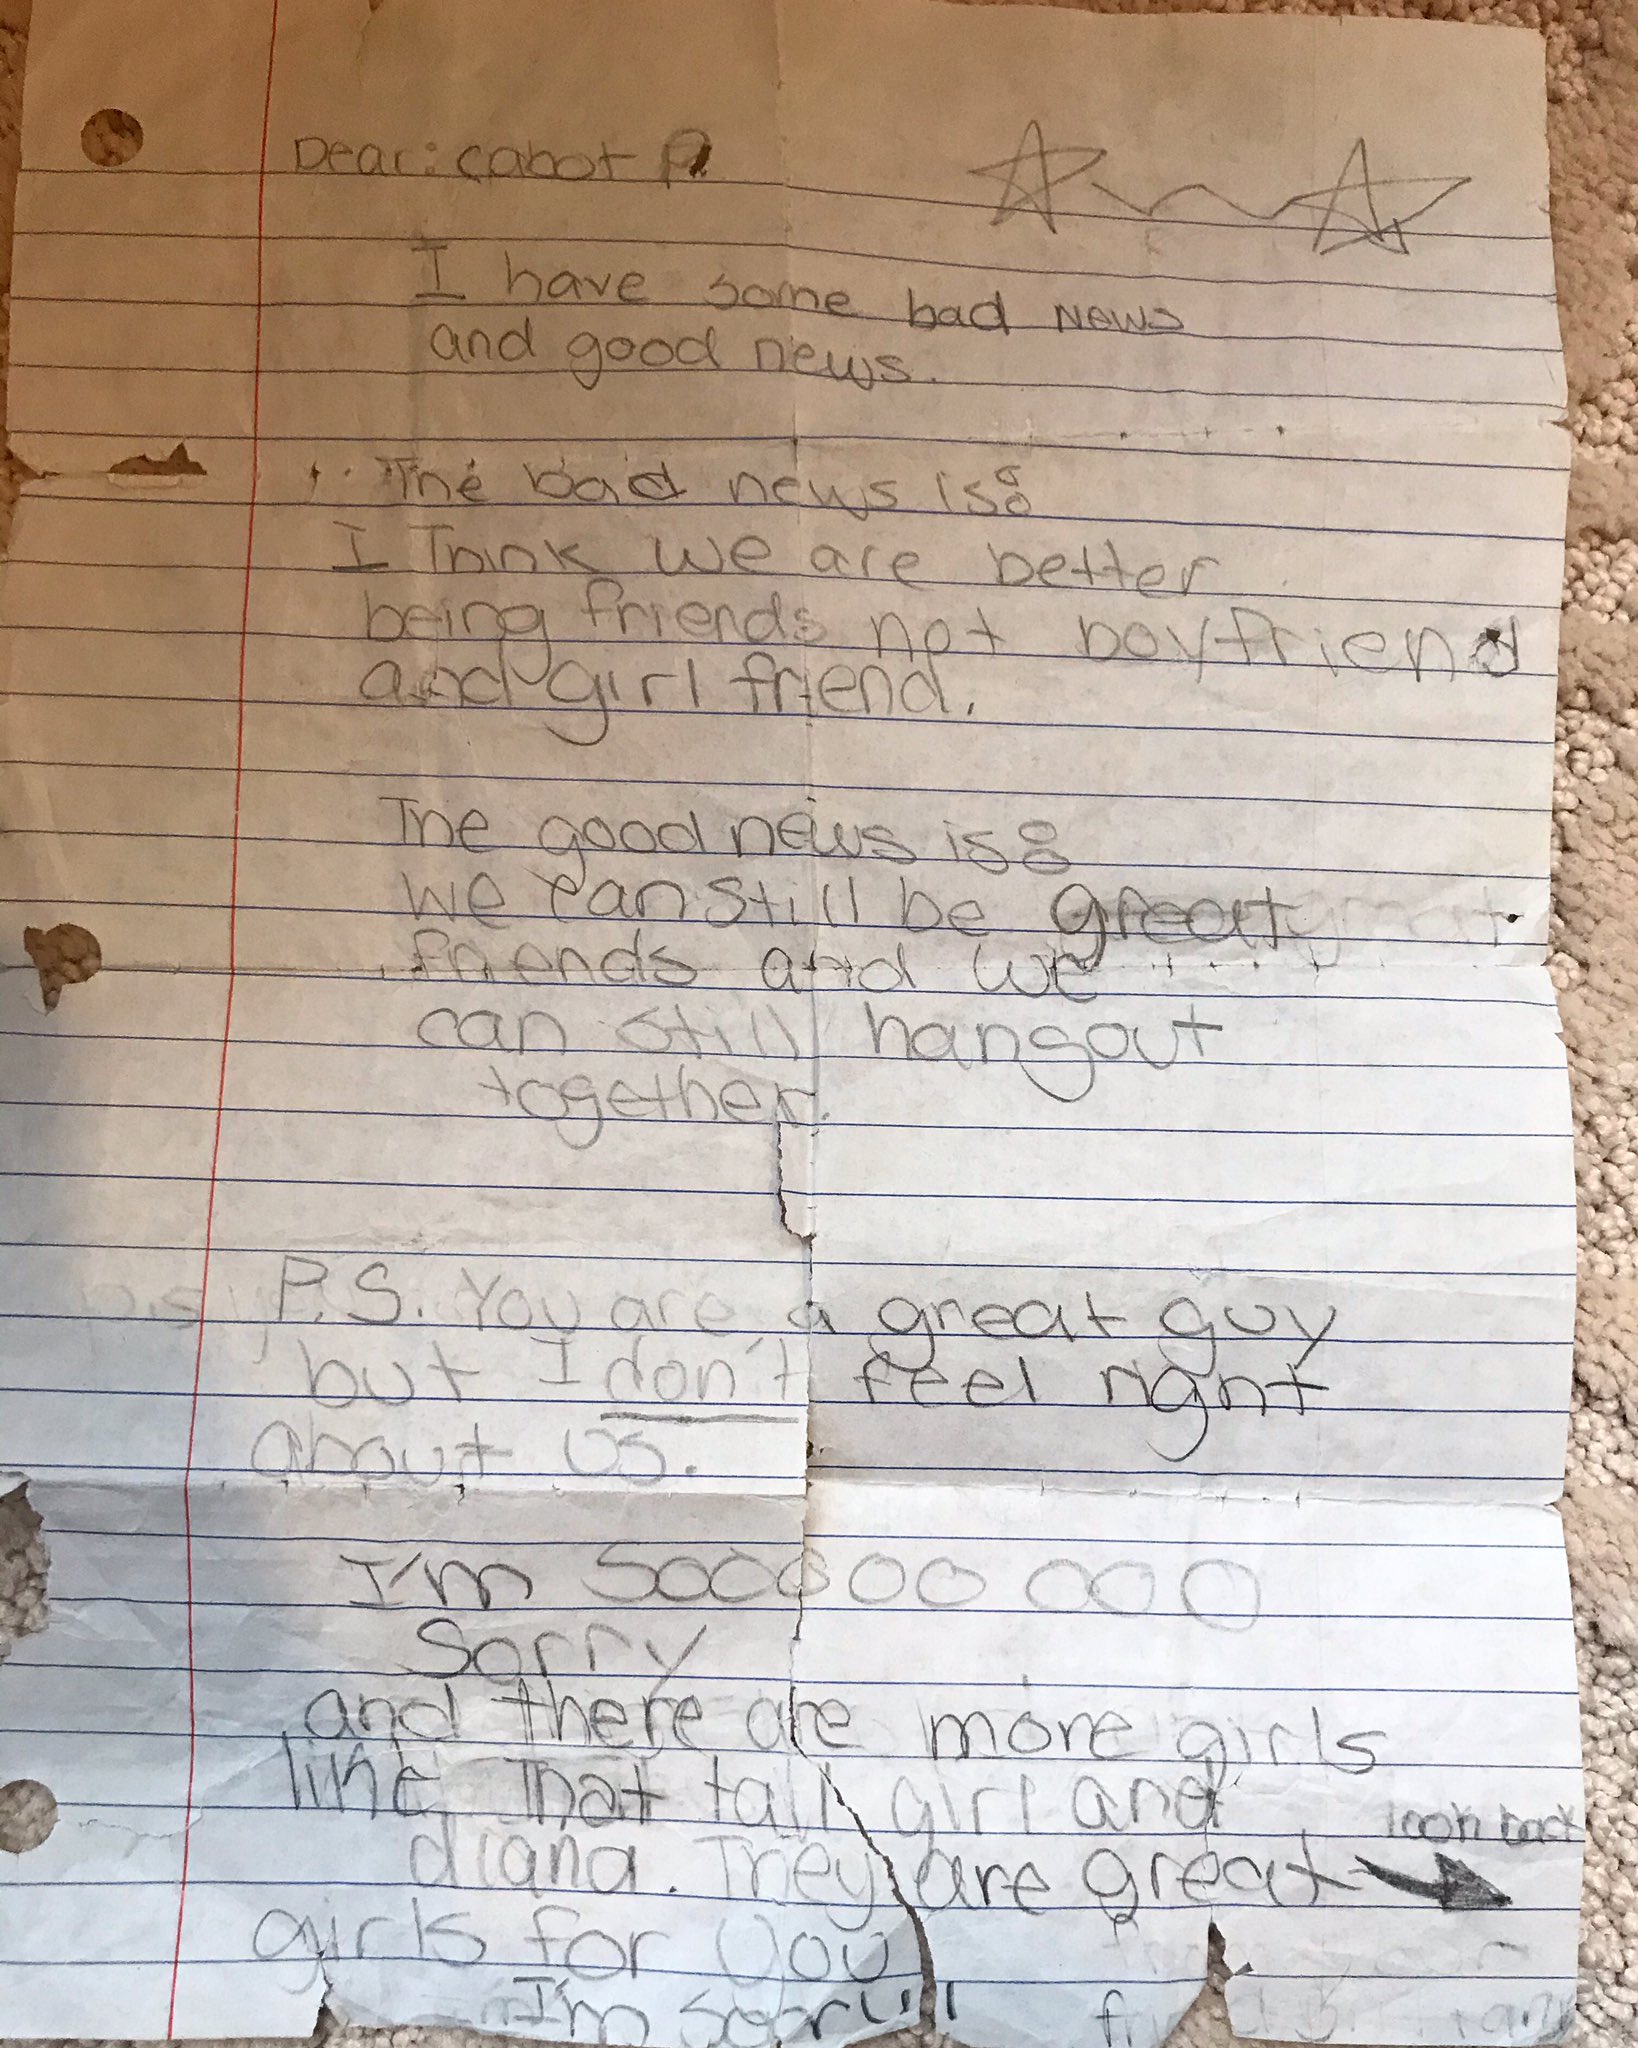 Dear: Cabot P
I have some bad news
and good news.
The bad news is:
I Think we are better
being friends not boyfriend
and girl friend.
The good news is:
we can still be great
friends and we
can still hangout
together.
P.S. You are a great guy
but I don't feel right
about us.
I'm soooooo ooo
Sorry
and there are more girls
like That tall girl and
look back
diana. They are great
girls for you
I'm